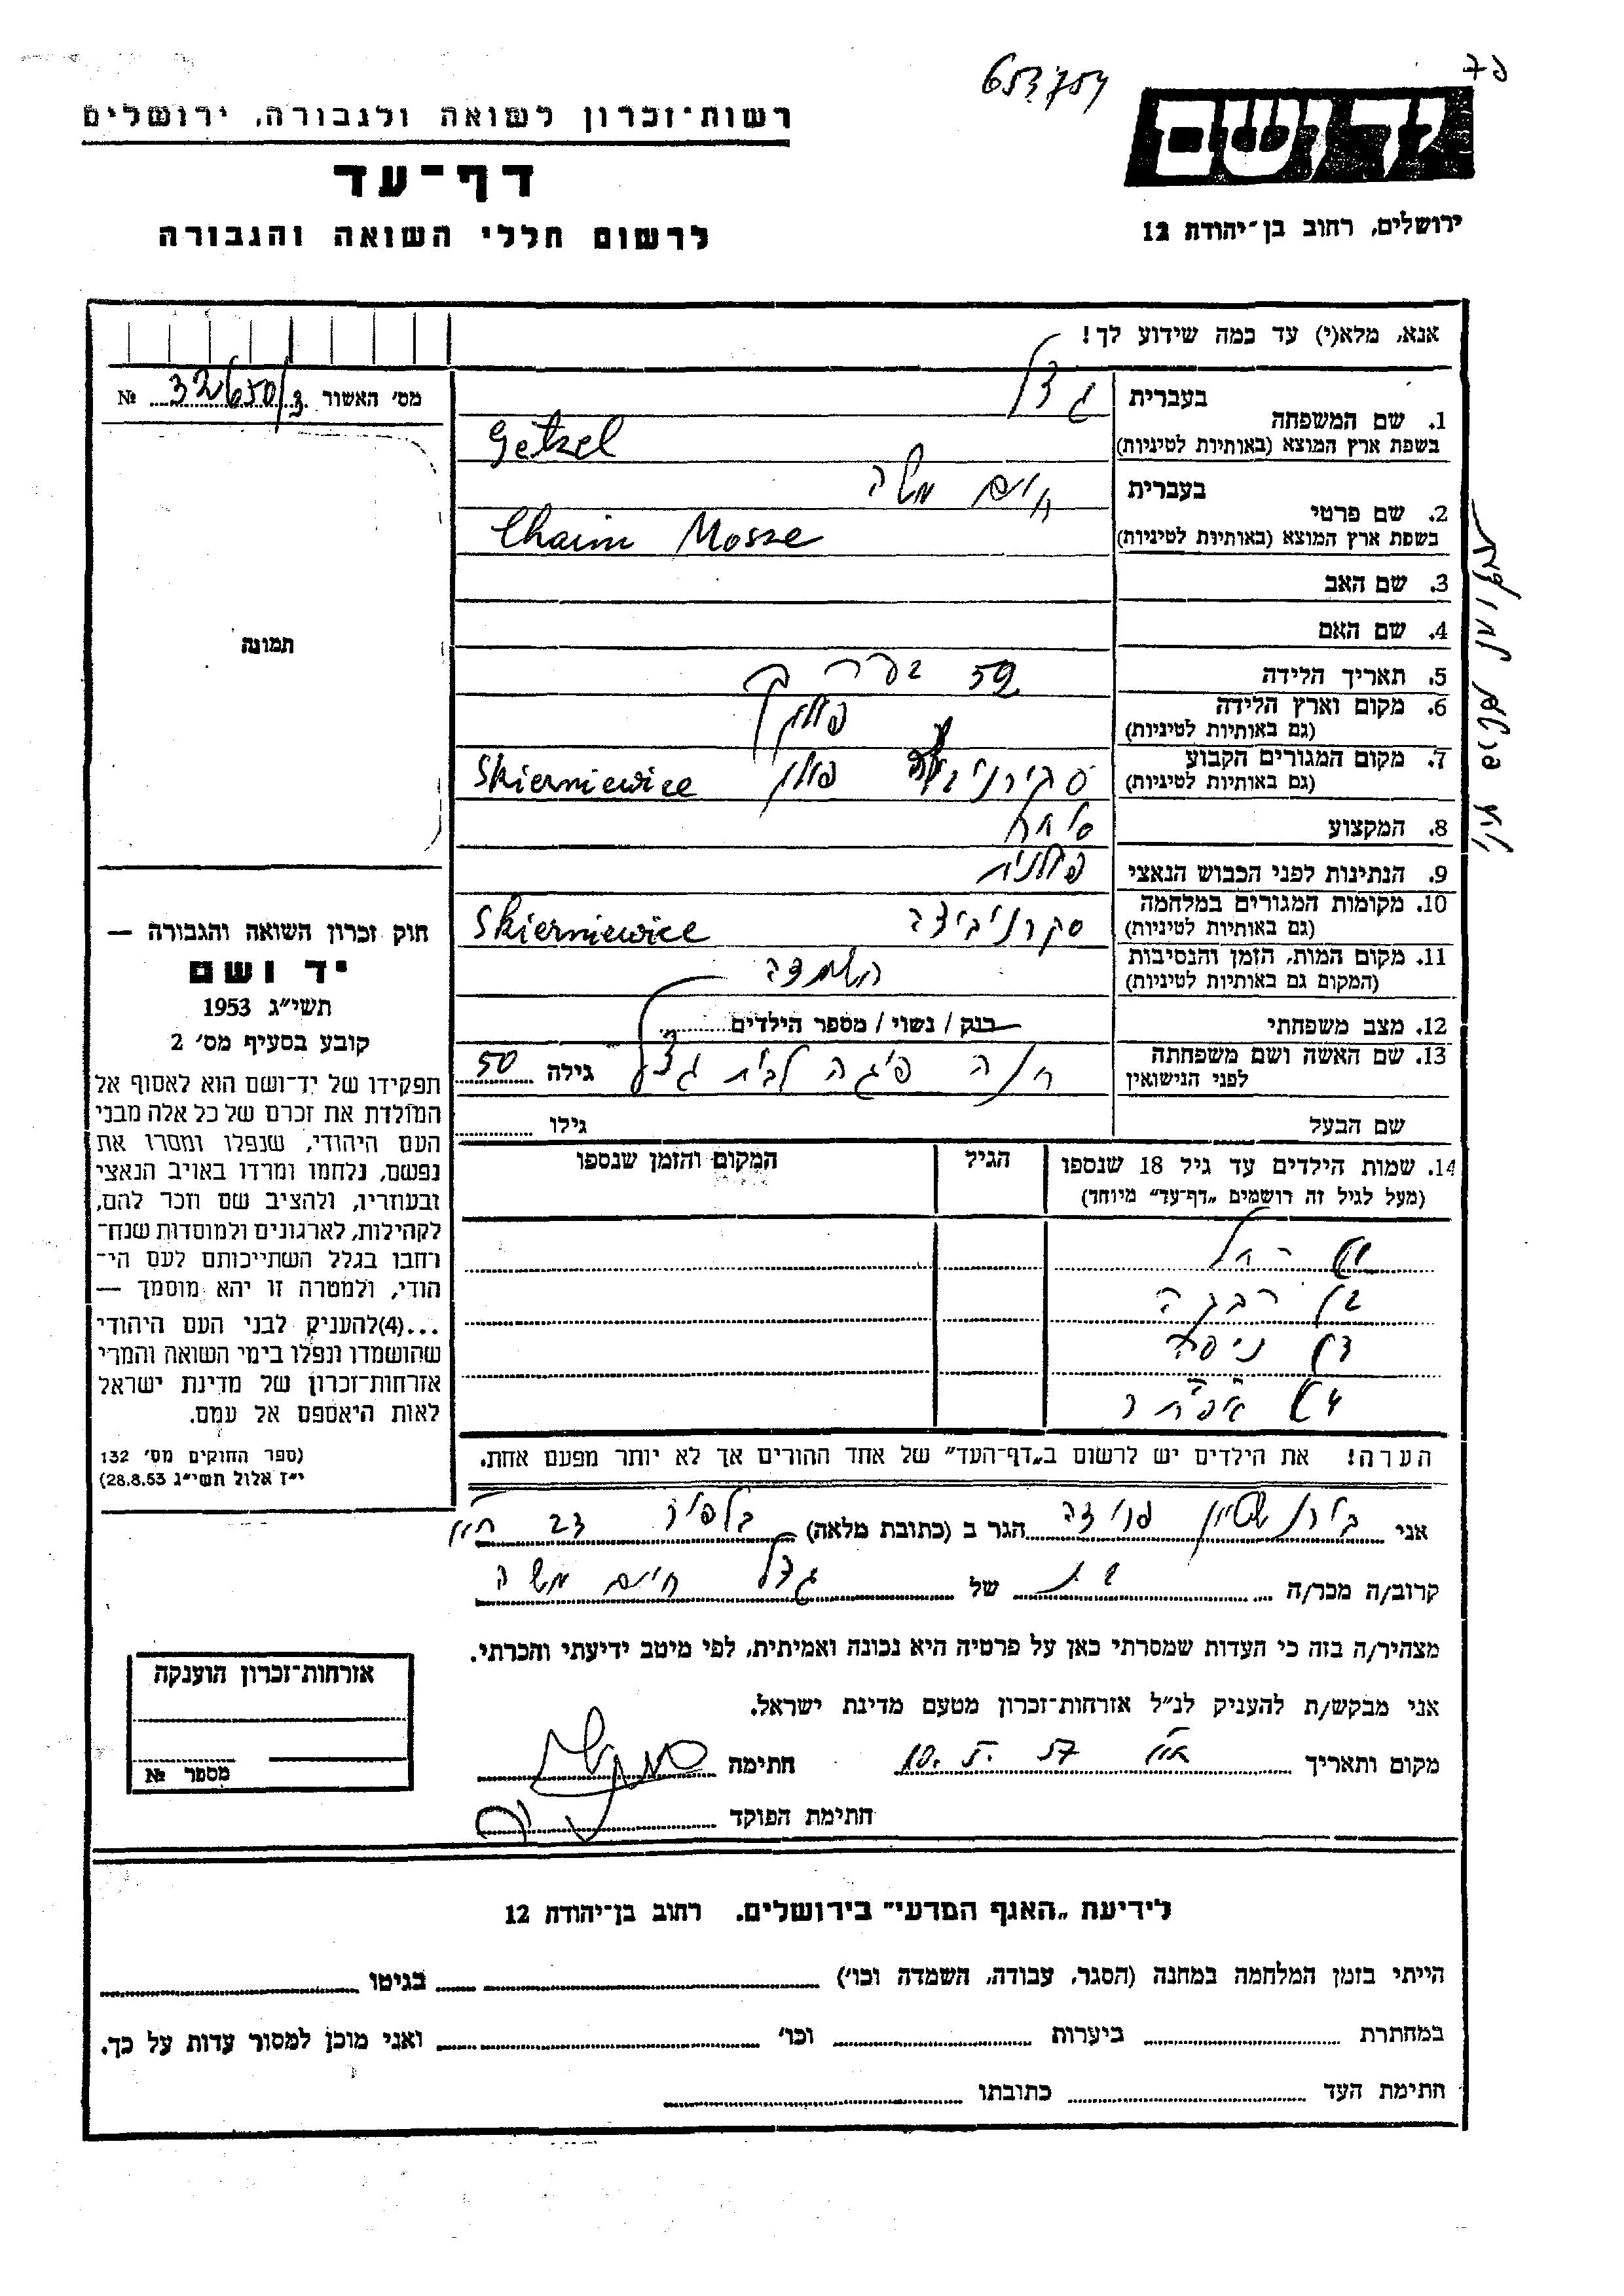 יד ושם
ירושלים, רחוב בן־יהודה 12
רשות־זכרון לשואה ולגבורה, ירושלים
דף־עד
לרשום חללי השואה והגבורה
אנא, מלא(י) עד כמה שידוע לך!
מס' האשור 32650/3 №
תמונה
1. שם המשפחה
בעברית גצל
בשפת ארץ המוצא (באותיות לטיניות) Getzel
2. שם פרטי
בעברית חיים משה
בשפת ארץ המוצא (באותיות לטיניות) Chaim Mosze
3. שם האב
4. שם האם
5. תאריך הלידה 59
6. מקום וארץ הלידה פולין
(גם באותיות לטיניות)
7. מקום המגורים הקבוע פולין Skierniewice
(גם באותיות לטיניות)
8. המקצוע סוחר
9. הנתינות לפני הכבוש הנאצי פולנית
10. מקומות המגורים במלחמה סקרניביצה Skierniewice
(גם באותיות לטיניות)
11. מקום המות, הזמן והנסיבות השמדה
(המקום גם באותיות לטיניות)
12. מצב משפחתי רווק / נשוי / מספר הילדים
13. שם האשה ושם משפחתה חנה פיגה לבית גצל גילה 50
לפני הנישואין
שם הבעל גילו
14. שמות הילדים עד גיל 18 שנספו הגיל המקום והזמן שנספו
(מעל לגיל זה רושמים „דף־עד” מיוחד)
רחל
רבקה
אסתר
הערה! את הילדים יש לרשום ב„דף־העד” של אחד ההורים אך לא יותר מפעם אחת.
אני בירנשטיין פרידה הגר ב (כתובת מלאה) בלפור 23
קרוב/ה מכר/ה בת של גצל חיים משה
מצהיר/ה בזה כי העדות שמסרתי כאן על פרטיה היא נכונה ואמיתית, לפי מיטב ידיעתי והכרתי.
אני מבקש/ת להעניק לנ״ל אזרחות־זכרון מטעם מדינת ישראל.
מקום ותאריך 10.5.57 חתימה
חתימת הפוקד
חוק זכרון השואה והגבורה —
יד ושם
תשי״ג 1953
קובע בסעיף מס' 2
תפקידו של יד־ושם הוא לאסוף אל
המולדת את זכרם של כל אלה מבני
העם היהודי, שנפלו ומסרו את
נפשם, נלחמו ומרדו באויב הנאצי
ובעוזריו, ולהציב שם וזכר להם,
לקהילות, לארגונים ולמוסדות שנח־
רחבו בגלל השתייכותם לעם הי־
הודי, ולמטרה זו יהא מוסמך —
...(4)להעניק לבני העם היהודי
שהושמדו ונפלו בימי השואה והמרי
אזרחות־זכרון של מדינת ישראל
לאות היאספם אל עמם.
(ספר החוקים מס' 132
י״ז אלול תשי״ג 28.8.53)
אזרחות־זכרון הוענקה
מספר №
לידיעת „האגף המדעי” בירושלים. רחוב בן־יהודה 12
הייתי בזמן המלחמה במחנה (הסגר, עבודה, השמדה וכו') בגיטו
במחתרת ביערות וכו' ואני מוכן למסור עדות על כך.
חתימת העד כתובתו